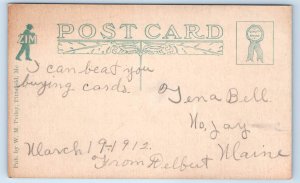 ZIM
POST CARD
I can beat you
buying cards.
Tena Bell.
No, Jay
Maine
March 19-1912.
From Delbert
Pub. by W. M.